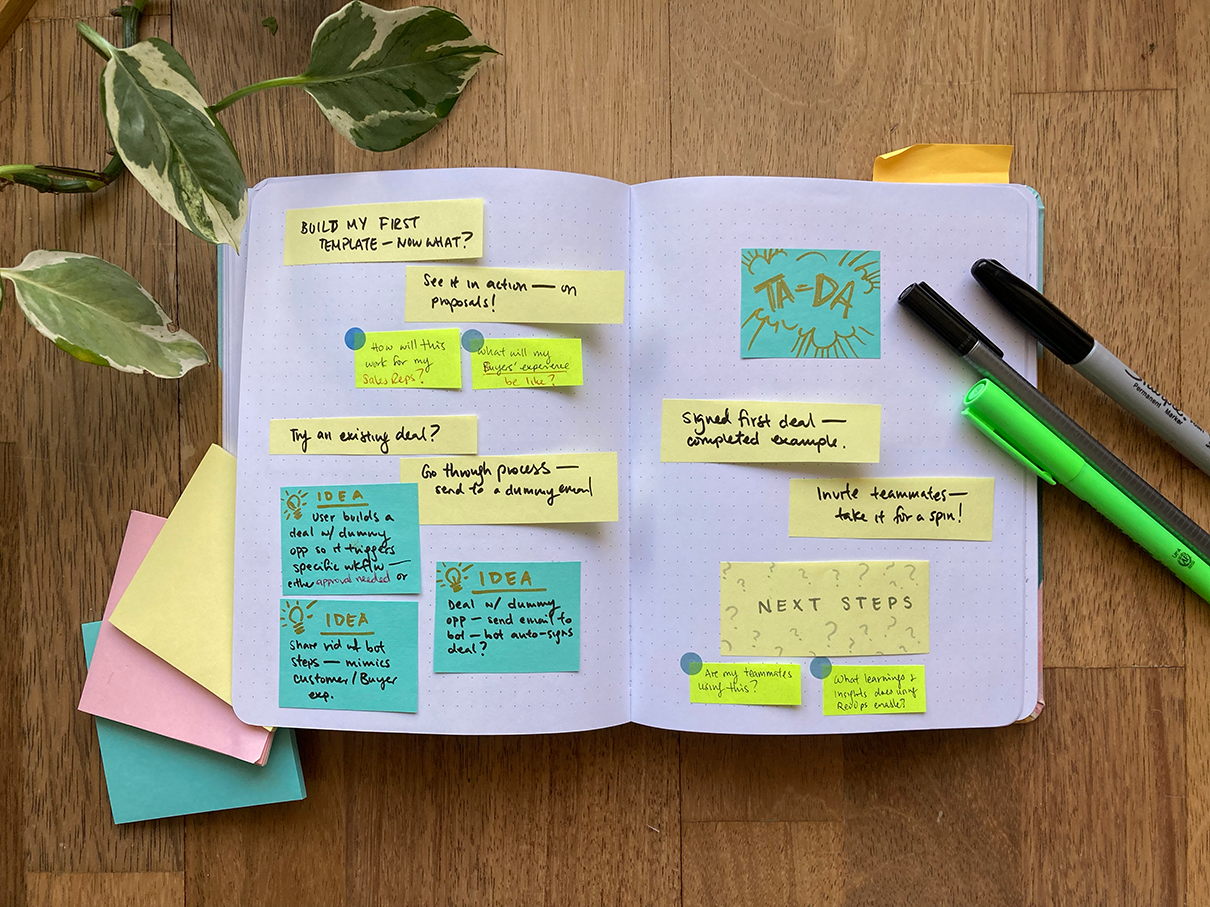 BUILD MY FIRST
TEMPLATE — NOW WHAT?
See it in action — on
proposals!
How will this
work for my
Sales Reps?
What will my
Buyers' experience
be like?
Try an existing deal?
Go through process —
send to a dummy email
IDEA
User builds a
deal w/ dummy
opp so it triggers
specific wkflw —
either approval needed or
IDEA
Share vid w/ bot
steps — mimics
Customer/Buyer
exp.
IDEA
Deal w/ dummy
opp — send email to
bot — bot auto-signs
deal?
TA=DA
Signed first deal —
completed example.
Invite teammates —
take it for a spin!
NEXT STEPS
Are my teammates
using this?
What learnings &
insights does using
RevOps enable?
Sharpie
Permanent Marker